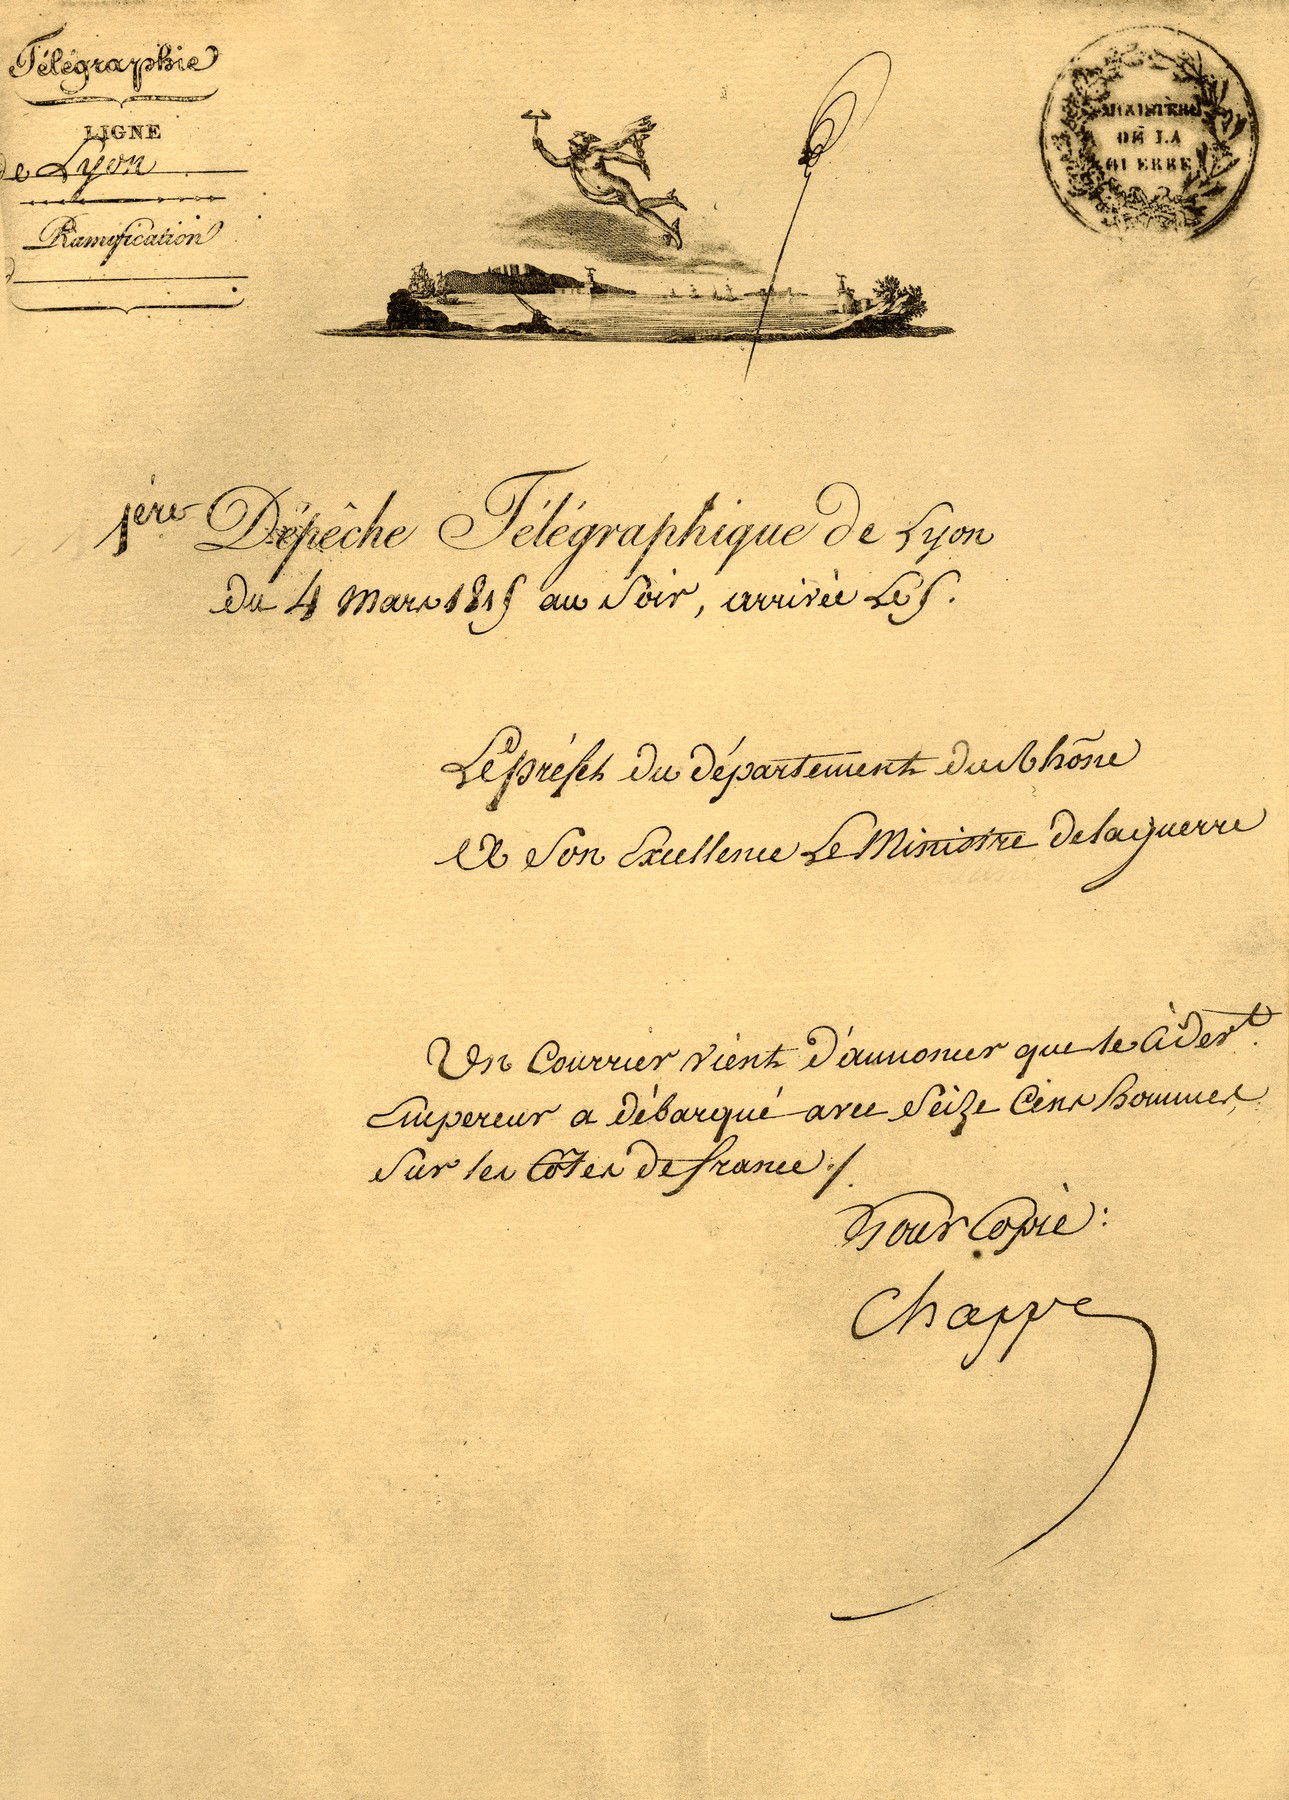 Télégraphie
LIGNE
de Lyon
Ramification
MINISTÈRE
DE LA
GUERRE
1ère Dépêche Télégraphique de Lyon
du 4 mars 1815 au soir, arrivée Le 5.
Le préfet du département du Rhône
à Son Excellence Le Ministre de la guerre
Un Courrier vient d'annoncer que le Cidevt.
Empereur a débarqué avec Seize Cens hommes
Sur les Côtes de france ./.
Pour Copie :
Chappe